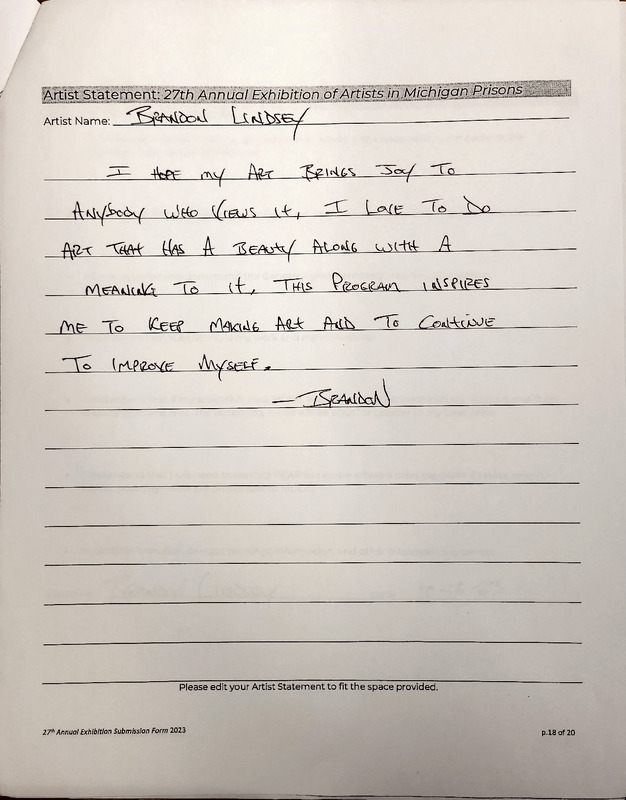 Artist Statement: 27th Annual Exhibition of Artists in Michigan Prisons
Artist Name: BRANDON LINDSEY
I HOPE MY ART BRINGS JOY TO
ANYBODY WHO VIEWS IT, I LOVE TO DO
ART THAT HAS A BEAUTY ALONG WITH A
MEANING TO IT, THIS PROGRAM INSPIRES
ME TO KEEP MAKING ART AND TO CONTINUE
TO IMPROVE MYSELF.
— BRANDON
Please edit your Artist Statement to fit the space provided.
27th Annual Exhibition Submission Form 2023
p.18 of 20